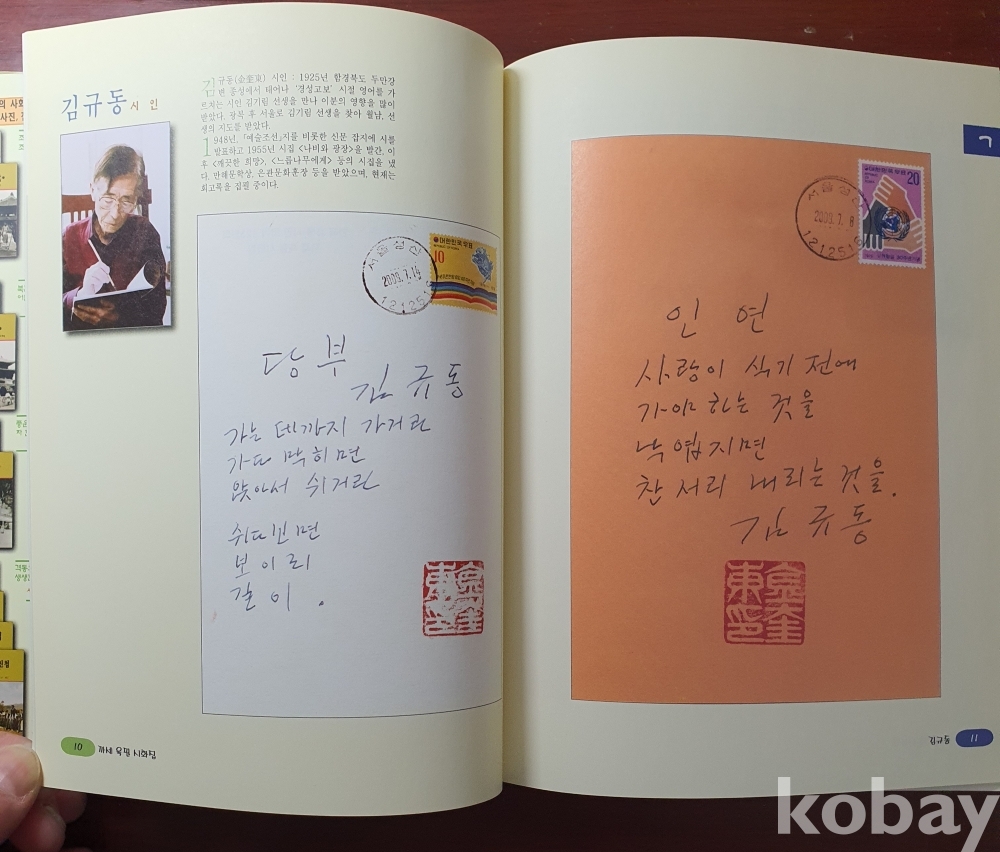 김규동 시인
김규동(金奎東) 시인 : 1925년 함경북도 두만강
변 종성에서 태어나 '경성고보' 시절 영어를 가
르쳐는 시인 김기림 선생을 만나 이분의 영향을 많이
받았다. 광복 후 서울로 김기림 선생을 찾아 월남, 선
생의 지도를 받았다.
1948년, 「예술조선」지를 비롯한 신문 잡지에 시를
발표하고 1955년 시집 <나비와 광장>을 발간, 이
후 <깨끗한 희망>, <느릅나무에게> 등의 시집을 냈
다. 만해문학상, 은관문화훈장 등을 받았으며, 현재는
회고록을 집필 중이다.
대한민국우표
10
서울성산
2009.7.14
121251
당부
김규동
가는 데까지 가거라
가다 막히면
앉아서 쉬거라
쉬다보면
보이리
길이.
金奎東
10 까세 육필 시화집
ㄱ
대한민국우표
20
서울성산
2009.7.8
1212516
인연
사랑이 식기 전에
가야 하는 것을
낙엽지면
찬 서리 내리는 것을.
김규동
金奎東
김규동 11
kobay